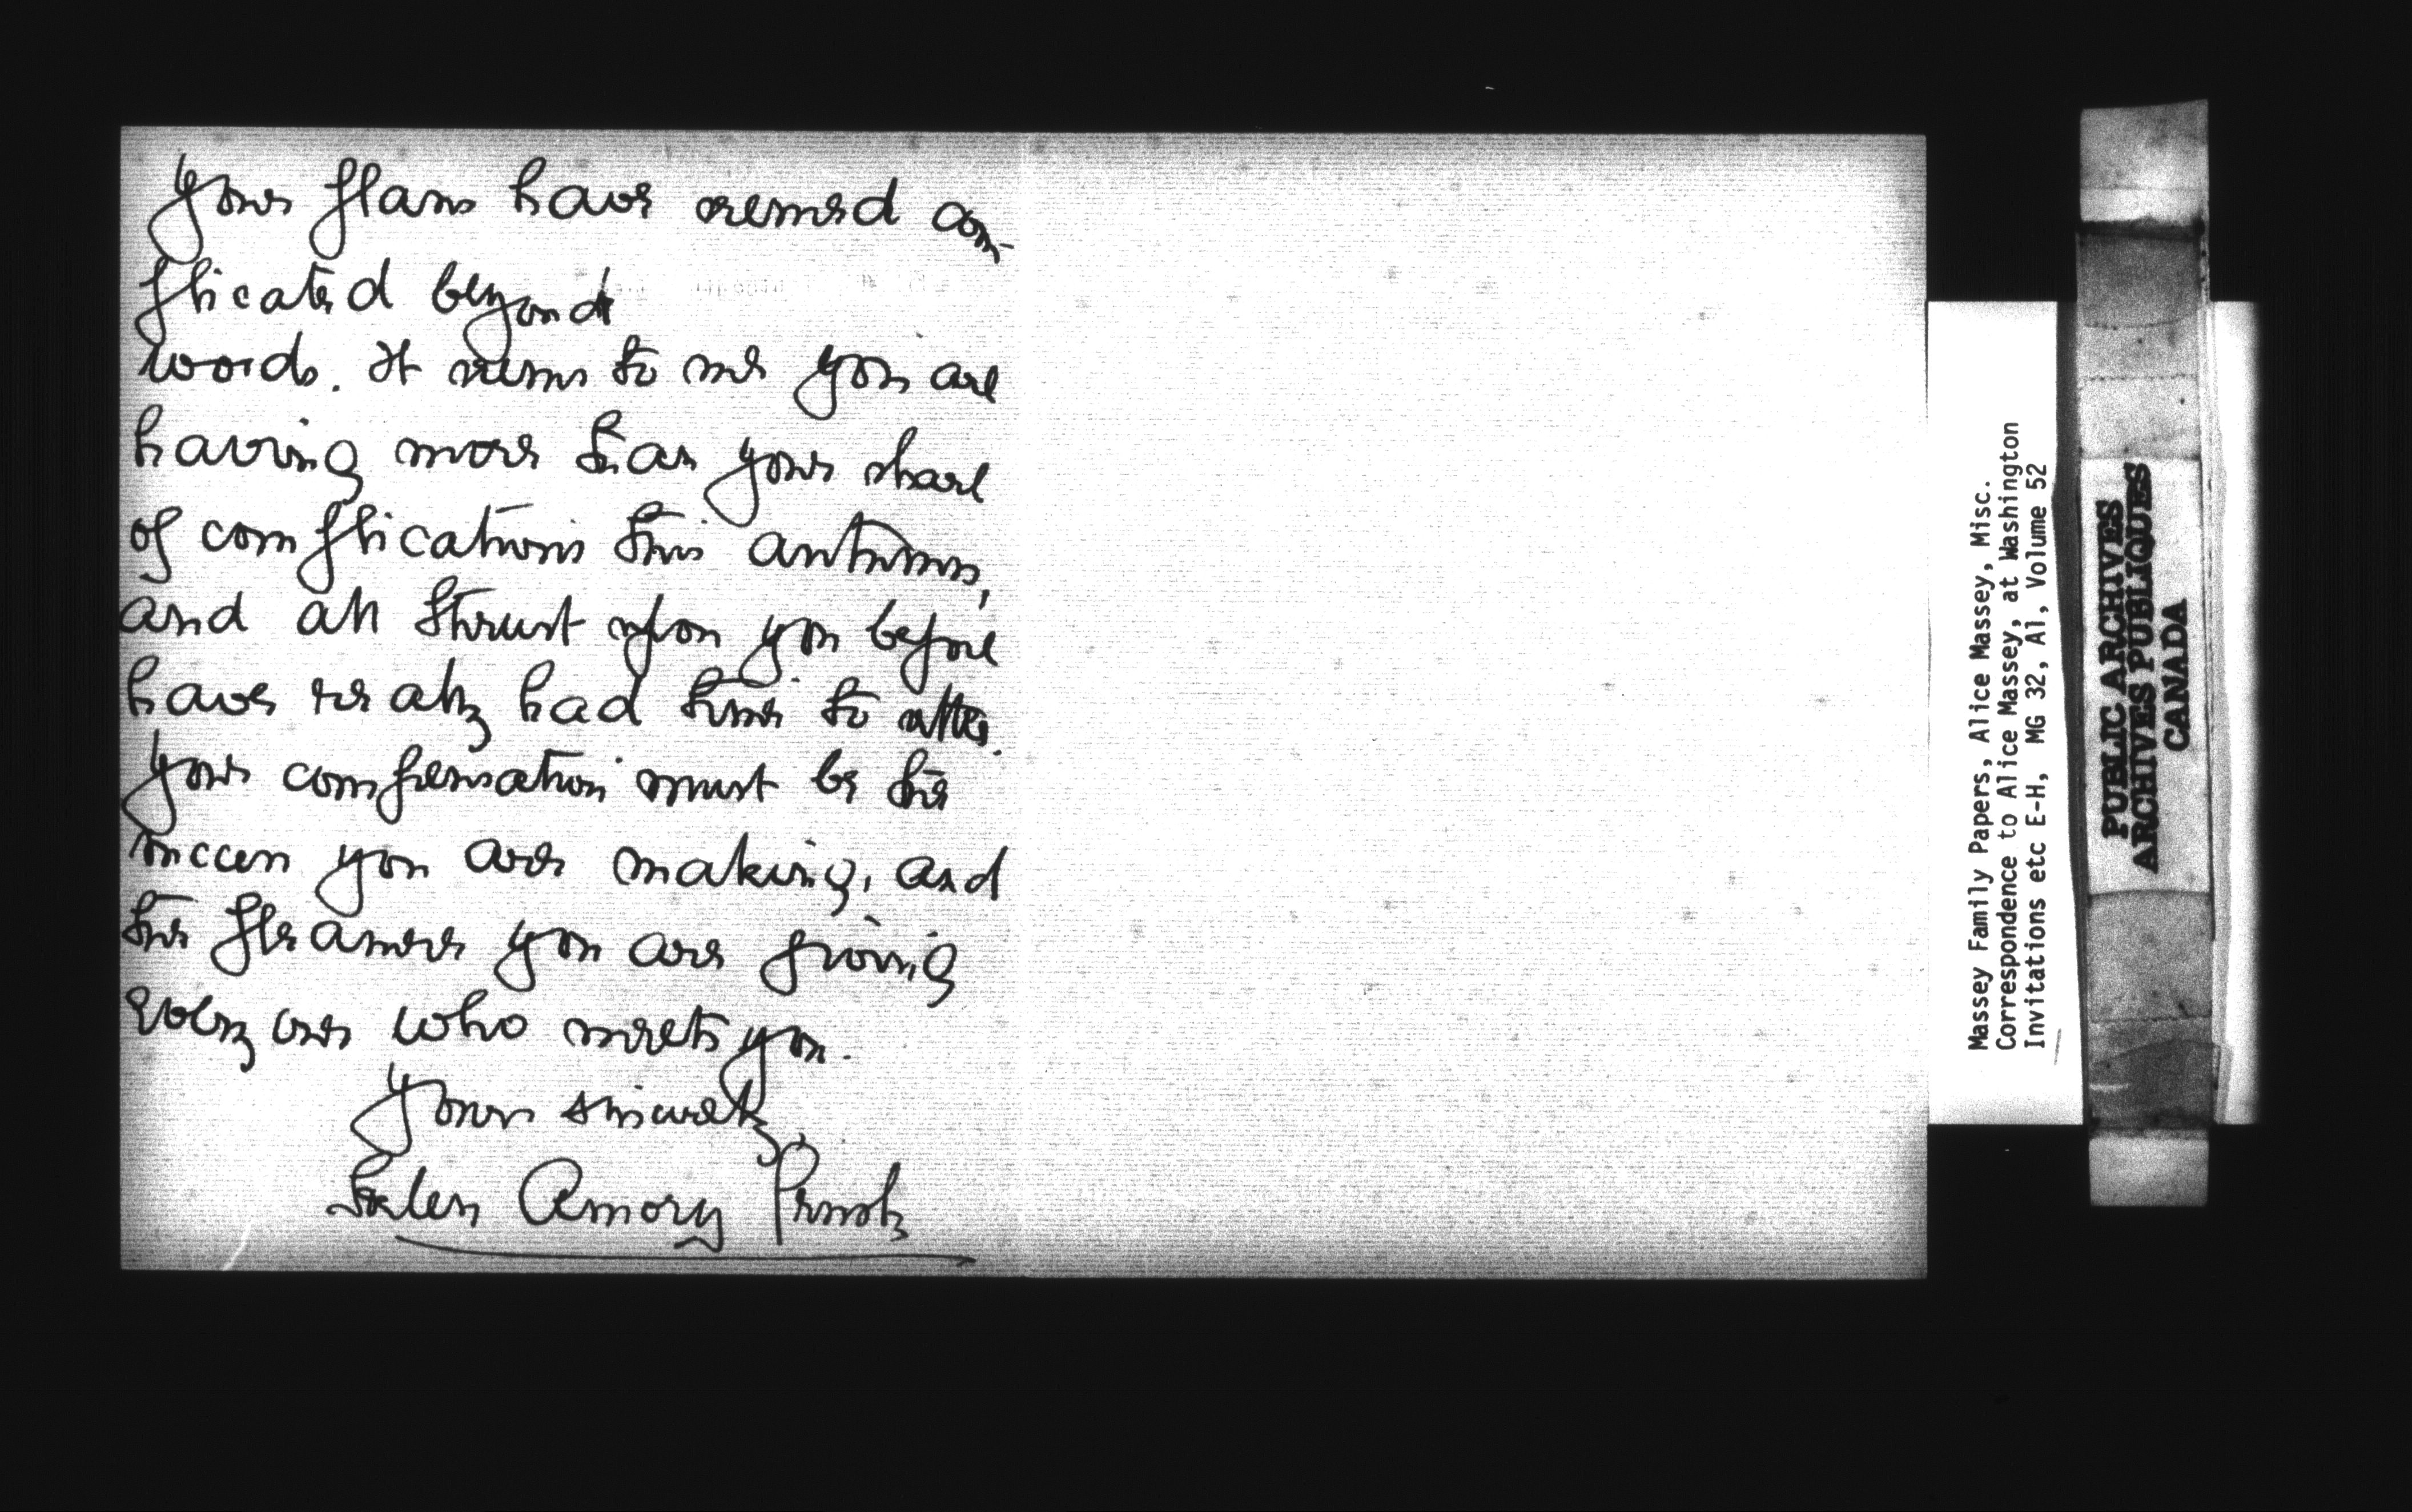 Your plans have seemed com-
plicated beyond
words. It seems to me you are
having more than your share
of complications this autumn,
and all thrust upon you before
have really had time to settle.
Your compensation must be the
success you are making, and
the pleasure you are giving
every one who meets you.
Yours sincerely
Helen Amory
Massey Family Papers, Alice Massey, Misc.
Correspondence to Alice Massey, at Washington
Invitations etc E-H, MG 32, A1, Volume 52
PUBLIC ARCHIVES
ARCHIVES PUBLIQUES
CANADA